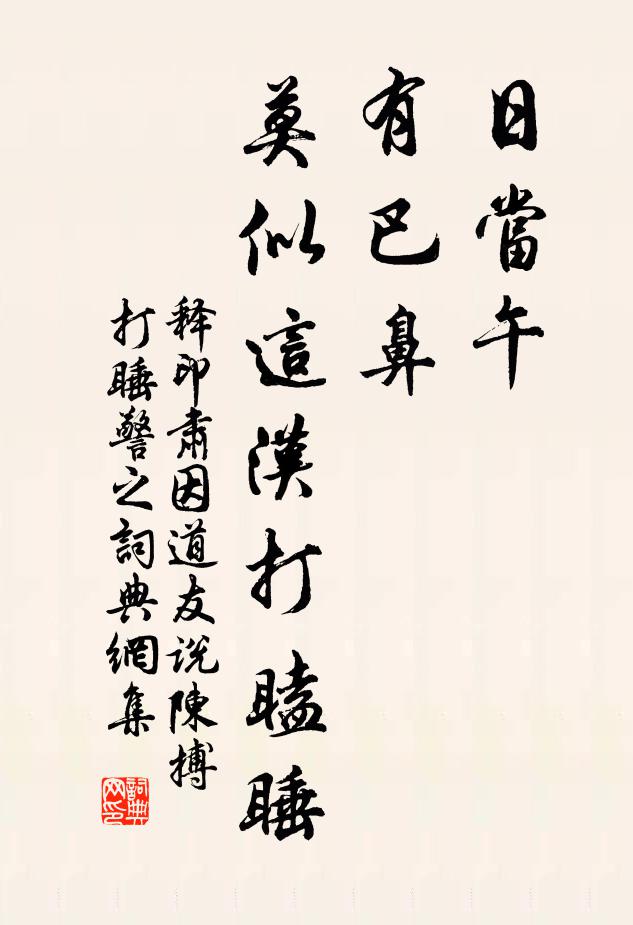 日當午
有巴鼻
莫似這漢打瞌睡
释印肅因道友说陳摶
打睡警之詞典網集
詞典网印